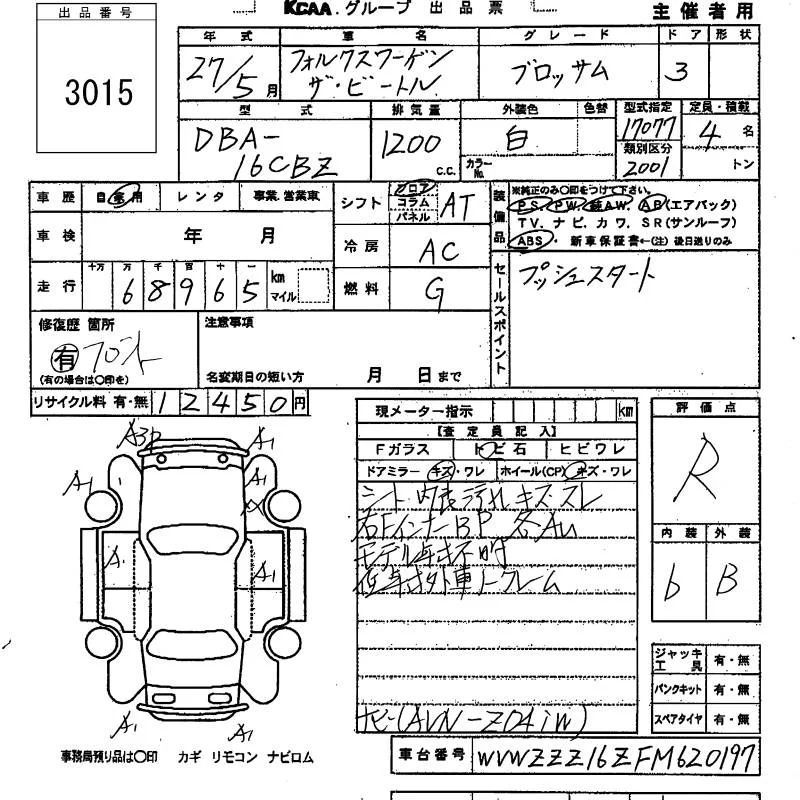 出品番号
3015
KCAA.グループ 出品票
主催者用
年式 車名 グレード ドア 形状
27/5月 フォルクスワーゲン ザ・ビートル ブロッサム 3
型式 排気量 外装色 色替 型式指定 定員・積載
DBA-16CBZ 1200 c.c. 白 カラーNo. 17077 4名
類別区分 2001 トン
車歴 自家用 レンタ 事業.営業車
シフト フロア コラム パネル AT
装備品
※純正のみ○印をつけて下さい。
P S. P W. 純A W. A B(エアバック)
T V. ナ ビ. カ ワ. S R(サンルーフ)
ABS・ 新車保証書←(注) 後日送りのみ
車検 年 月
冷房 AC
走行 十万 万 千 百 十 一 68965 km マイル
燃料 G
セールスポイント
プッシュスタート
修復歴 箇所
有 フロント
(有の場合は○印を)
注意事項
名変期日の短い方 月 日まで
リサイクル料 有・無 12450円
現メーター指示 km
【査定員記入】
Fガラス トビ石 ヒビワレ
ドアミラー キズ・ワレ ホイール(CP) キズ・ワレ
シート 内張 汚れ キズ スレ
右Fインナー BP 各AU
ナビー(AVN-Z04iW)
評価点
R
内装 外装
b B
ジャッキ工具 有・無
パンクキット 有・無
スペアタイヤ 有・無
A3P
A1
A1
A1
A1
A1
A1
A1
事務局預り品は○印 カギ リモコン ナビロム
車台番号 WVWZZZ16ZFM620197